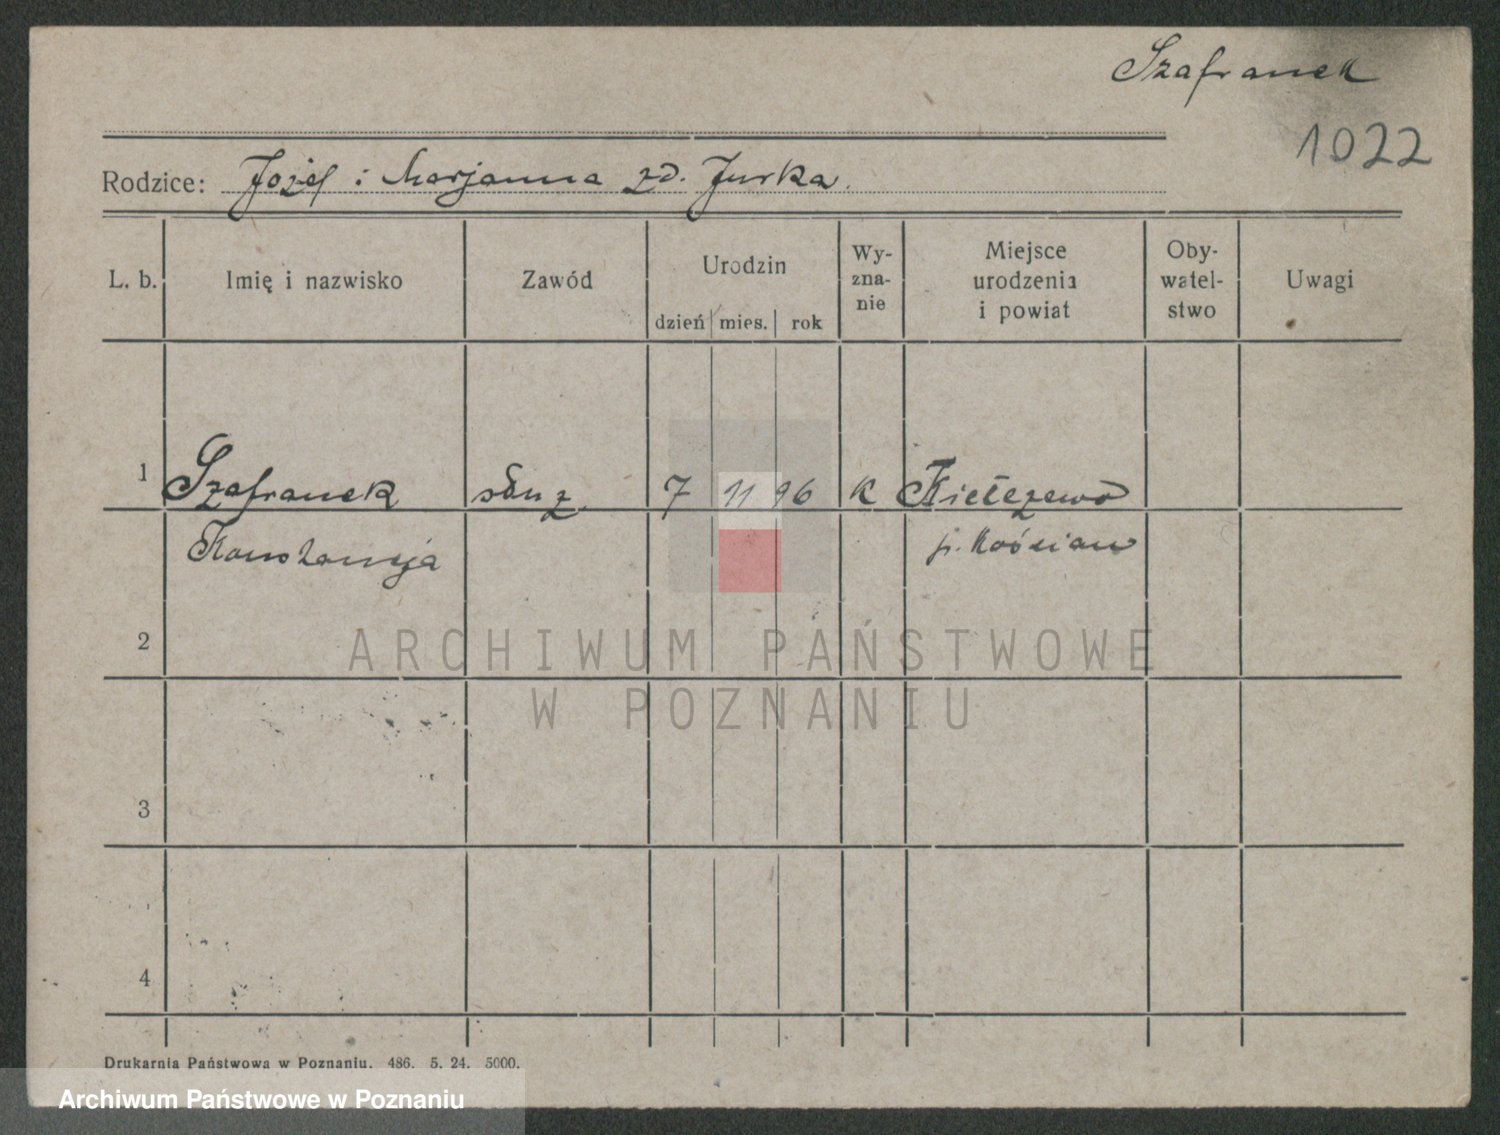 Szafranek
1022
Rodzice: Jozef i Marjanna zd. Jurka.
L. b. Imię i nazwisko Zawód Urodzin dzień mies. rok Wy- zna- nie Miejsce urodzenia i powiat Oby- watel- stwo Uwagi
1 Szafranek służ. 7 11 96 K Kiełczewo
Konstancja p. Kościan
2
ARCHIWUM PAŃSTWOWE
W POZNANIU
3
4
Drukarnia Państwowa w Poznaniu. 486. 5. 24. 5000.
Archiwum Państwowe w Poznaniu